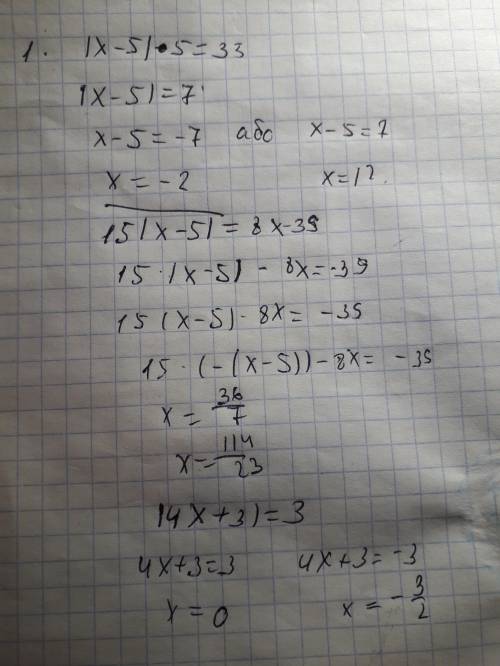 1. |x-5|•5=33
|x-5|=7
x-5=-7 або x-5=7
x=-2 x=12.
15|x-5|=8x-39
15·|x-5|-8x=-39
15(x-5)-8x=-39
15·(-(x-5))-8x=-39
x=36/7
x=114/23
|4x+3|=3
4x+3=3 4x+3=-3
x=0 x=-3/2